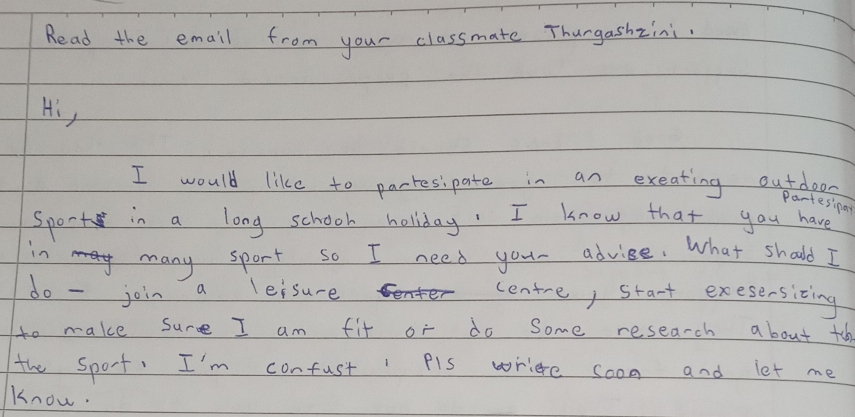 Read the email from your classmate Thurgashzini.
Hi,
I would like to partesipate in an exeating outdoor
Sport in a long schooh holiday. I know that you have Partesipat
in may many sport so I need your advise. What should I
do - join a leisure Center centre, start exesersizing
to make sure I am fit or do some research about
the sport. I'm confust, Pls write soon and let me
know.